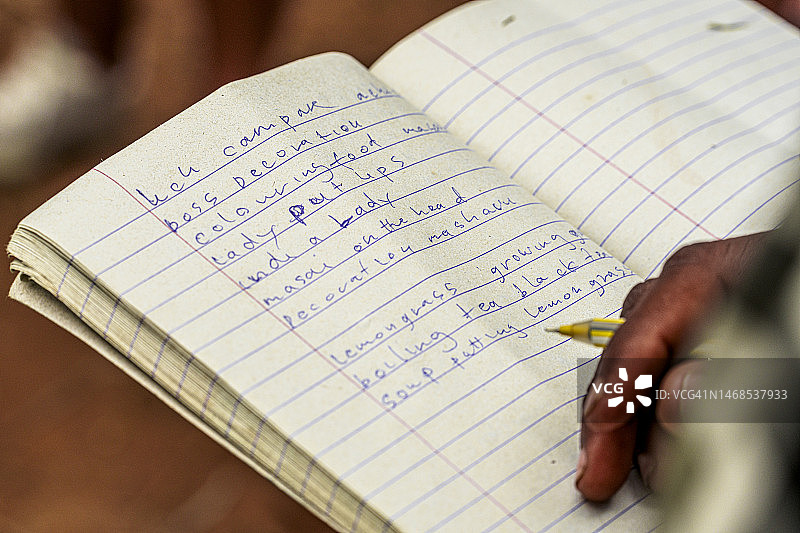 campak
boss Decoration
colouring foot
Lady put lips
inde a Lady
masai on the head
Decoration mashavu
lemongrass growing
boiling tea black
soup putting lemongrass
VCG
VCG.COM
ID:VCG41N1468537933